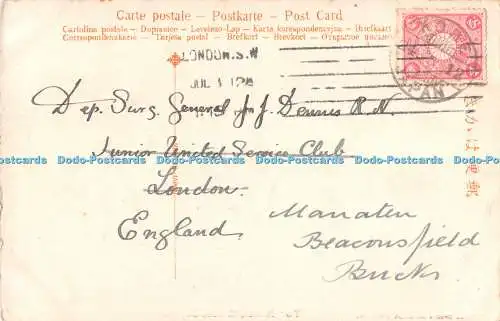 Carte postale - Postkarte - Post Card
Cartolina postale - Dopisnice - Levelezo-Lap - Karta korespondencyjna - Briefkaart
Correspondenzkarte - Tarjeta postal - Brefkort - Brevkort - Открытое письмо
LONDON. S.W
JUL 1 12
JAPAN
Dep. Surg. General J. J. Dennis R.N.
Junior United Service Club
London
England
Manaten
Beaconsfield
Bucks
きかは便郵
Dodo-Postcards Dodo-Postcards Dodo-Postcards Dodo-Postcards Dodo-Postcards Dodo-Postcards